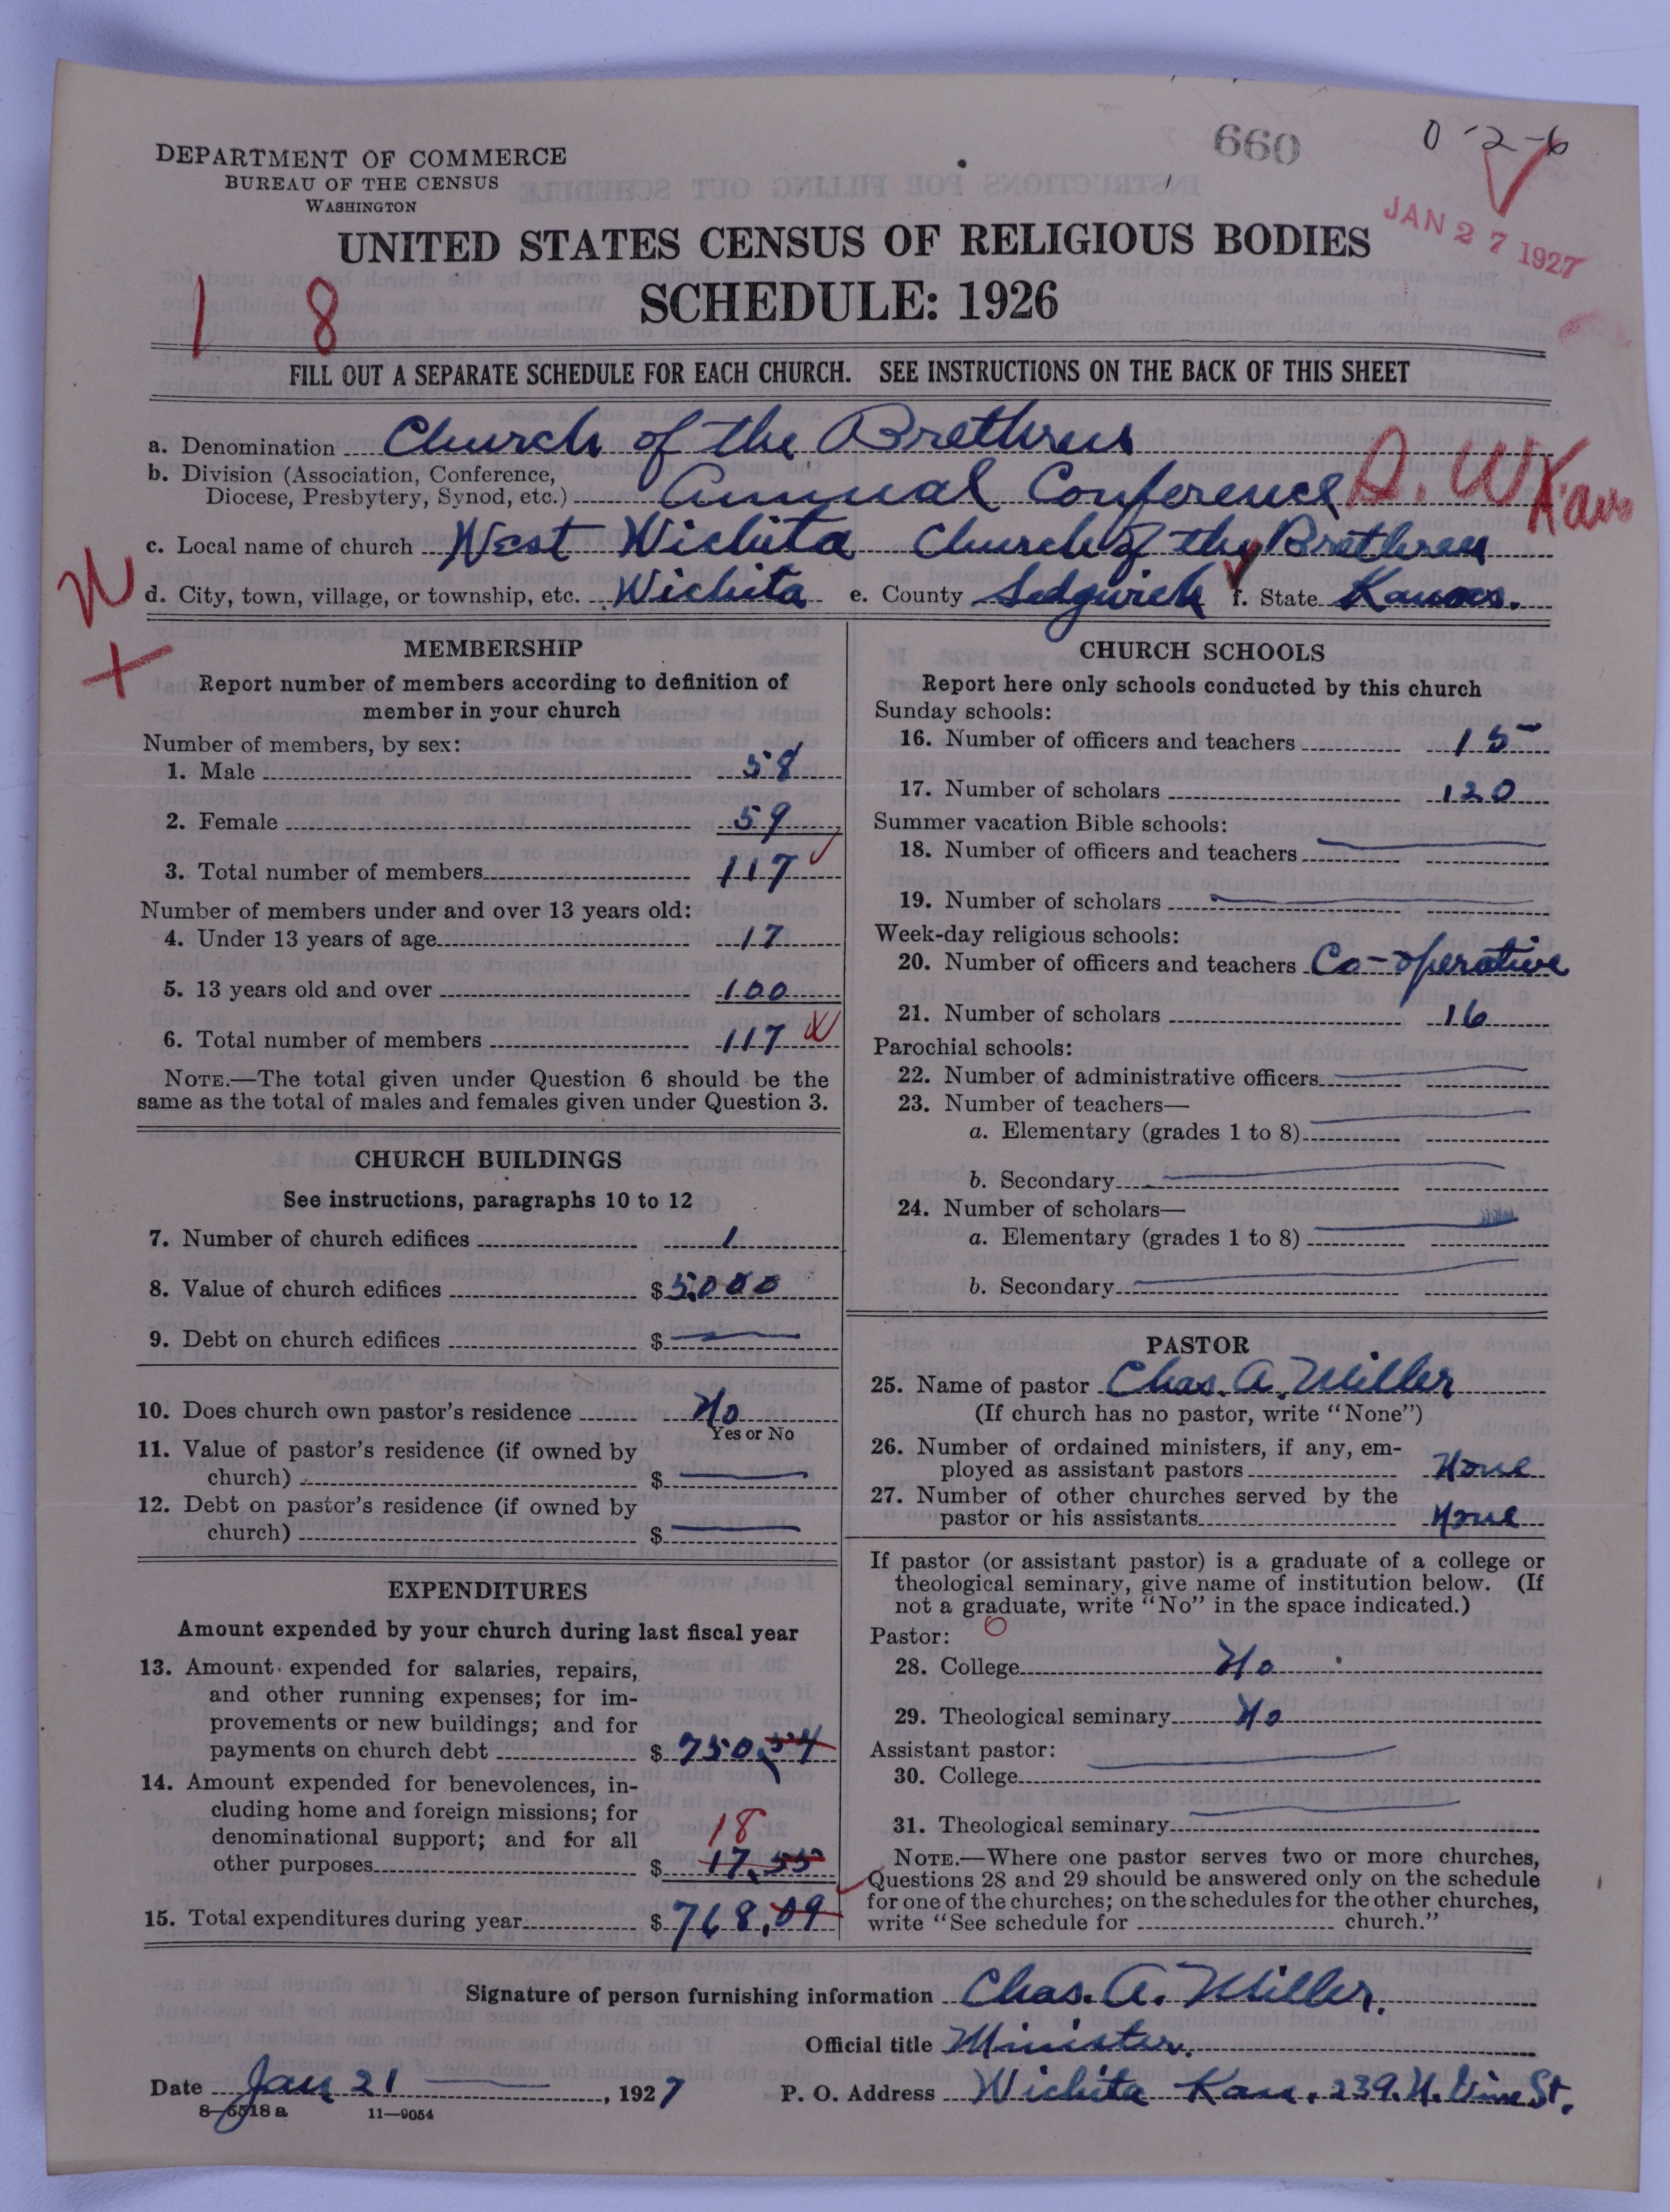 660
0-2-6
DEPARTMENT OF COMMERCE
BUREAU OF THE CENSUS
WASHINGTON
JAN 27 1927
UNITED STATES CENSUS OF RELIGIOUS BODIES
SCHEDULE: 1926
1 8
FILL OUT A SEPARATE SCHEDULE FOR EACH CHURCH. SEE INSTRUCTIONS ON THE BACK OF THIS SHEET
a. Denomination Church of the Brethren
b. Division (Association, Conference,
Diocese, Presbytery, Synod, etc.) Annual Conference
c. Local name of church West Wichita Church of the Brethren
d. City, town, village, or township, etc. Wichita e. County Sedgwick f. State Kansas.
MEMBERSHIP
Report number of members according to definition of
member in your church
Number of members, by sex:
1. Male 58
2. Female 59
3. Total number of members 117
Number of members under and over 13 years old:
4. Under 13 years of age 17
5. 13 years old and over 100
6. Total number of members 117
NOTE.—The total given under Question 6 should be the
same as the total of males and females given under Question 3.
CHURCH BUILDINGS
See instructions, paragraphs 10 to 12
7. Number of church edifices 1
8. Value of church edifices $ 5,000
9. Debt on church edifices $ —
10. Does church own pastor's residence No
Yes or No
11. Value of pastor's residence (if owned by
church) $ —
12. Debt on pastor's residence (if owned by
church) $ —
EXPENDITURES
Amount expended by your church during last fiscal year
13. Amount expended for salaries, repairs,
and other running expenses; for im-
provements or new buildings; and for
payments on church debt $ 750.54
14. Amount expended for benevolences, in-
cluding home and foreign missions; for
denominational support; and for all
18
other purposes $ 17.55
15. Total expenditures during year $ 768.09
CHURCH SCHOOLS
Report here only schools conducted by this church
Sunday schools:
16. Number of officers and teachers 15
17. Number of scholars 120
Summer vacation Bible schools:
18. Number of officers and teachers —
19. Number of scholars —
Week-day religious schools:
20. Number of officers and teachers Co-operative
21. Number of scholars 16
Parochial schools:
22. Number of administrative officers —
23. Number of teachers—
a. Elementary (grades 1 to 8) —
b. Secondary —
24. Number of scholars—
a. Elementary (grades 1 to 8) —
b. Secondary —
PASTOR
25. Name of pastor Chas. A. Miller
(If church has no pastor, write "None")
26. Number of ordained ministers, if any, em-
ployed as assistant pastors None
27. Number of other churches served by the
pastor or his assistants None
If pastor (or assistant pastor) is a graduate of a college or
theological seminary, give name of institution below. (If
not a graduate, write "No" in the space indicated.)
Pastor:
28. College No
29. Theological seminary No
Assistant pastor: —
30. College
31. Theological seminary —
NOTE.—Where one pastor serves two or more churches,
Questions 28 and 29 should be answered only on the schedule
for one of the churches; on the schedules for the other churches,
write "See schedule for church."
Signature of person furnishing information Chas. A. Miller.
Official title Minister.
Date Jan 21 —, 1927 P. O. Address Wichita Kan. 239. N. Vine St.
8—5518 a 11—9054